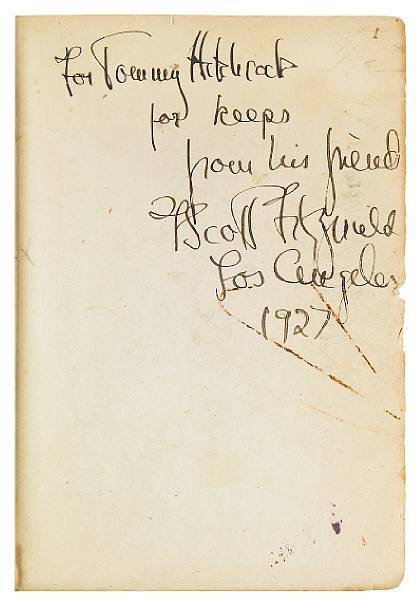 1
For Tommy Hitchcock
for keeps
from his friend
F Scott Fitzgerald
Los Angeles
1927